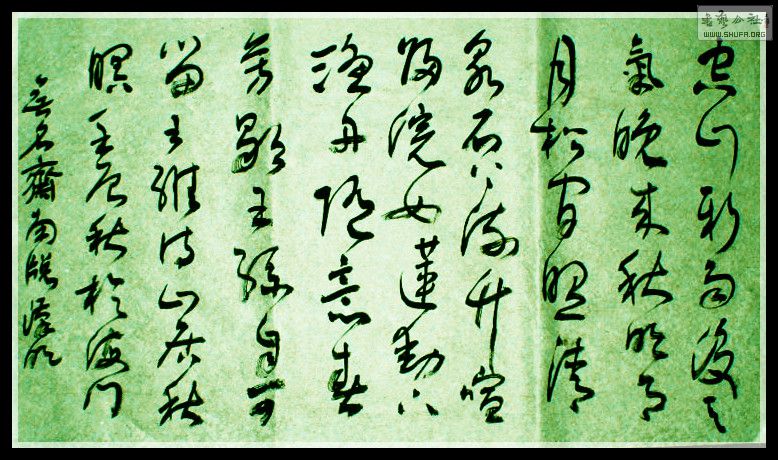 空山新雨後天
氣晚來秋明月
月松間照清
泉石上流竹喧
歸浣女蓮動下
漁舟隨意春
芳歇王孫自可
留王維詩山居秋
暝壬辰秋於海門
無名齋南牕
WWW.SHUFA.ORG